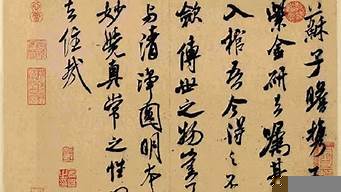 蘇子瞻携
紫金研去嘱其
入棺吾今得之不
敛傳世之物豈可
与清淨圓明本
妙覺真常之性同
去住哉